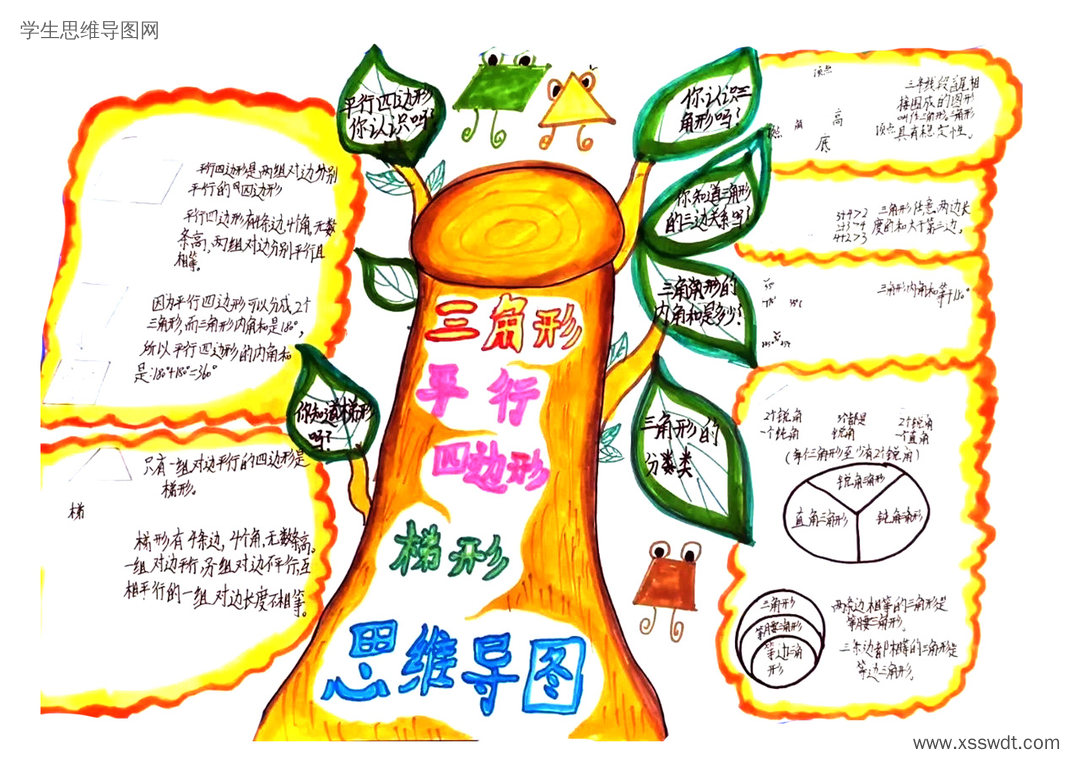 学生思维导图网
平行四边形
你认识吗?
平行四边形是两组对边分别
平行的四边形
平行四边形有4条边,4个角,无数
条高,两组对边分别平行且
相等。
因为平行四边形可以分成2个
三角形,而三角形内角和是180°,
所以平行四边形的内角和
是:180°+180°=360°
你知道梯形
吗?
只有一组对边平行的四边形是
梯形。
梯
梯形有4条边,4个角,无数条高。
一组对边平行,另一组对边不平行,互
相平行的一组对边长度不相等。
三角形
平行
四边形
梯形
思维导图
你认识三
角形吗?
顶点
角
高
底
顶点
三条线段首尾相
接围成的图形
叫作三角形。三角形
具有稳定性。
你知道三角形
的三边关系吗?
3+4>2
2+3>4
4+2>3
三角形任意两边长
度的和大于第三边。
三角形的
内角和是多少?
三角形内角和等于180°
三角形的
分类
2个锐角
一个钝角
3个都是
锐角
2个锐角
一个直角
(每个三角形至少有2个锐角)
锐角三角形
直角三角形
钝角三角形
三角形
等腰三角形
等边三角
形
两条边相等的三角形是
等腰三角形。
三条边都相等的三角形是
等边三角形。
www.xsswdt.com